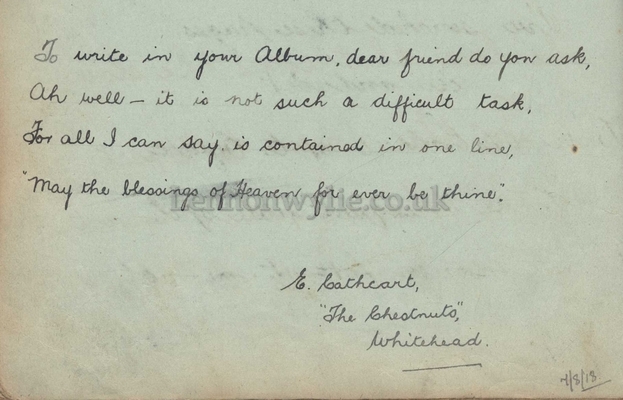 To write in your Album, dear friend do you ask,
Ah well – it is not such a difficult task,
For all I can say is contained in one line,
"May the blessings of Heaven for ever be thine".
lennonwylie.co.uk
E. Cathcart,
"The Chestnuts",
Whitehead.